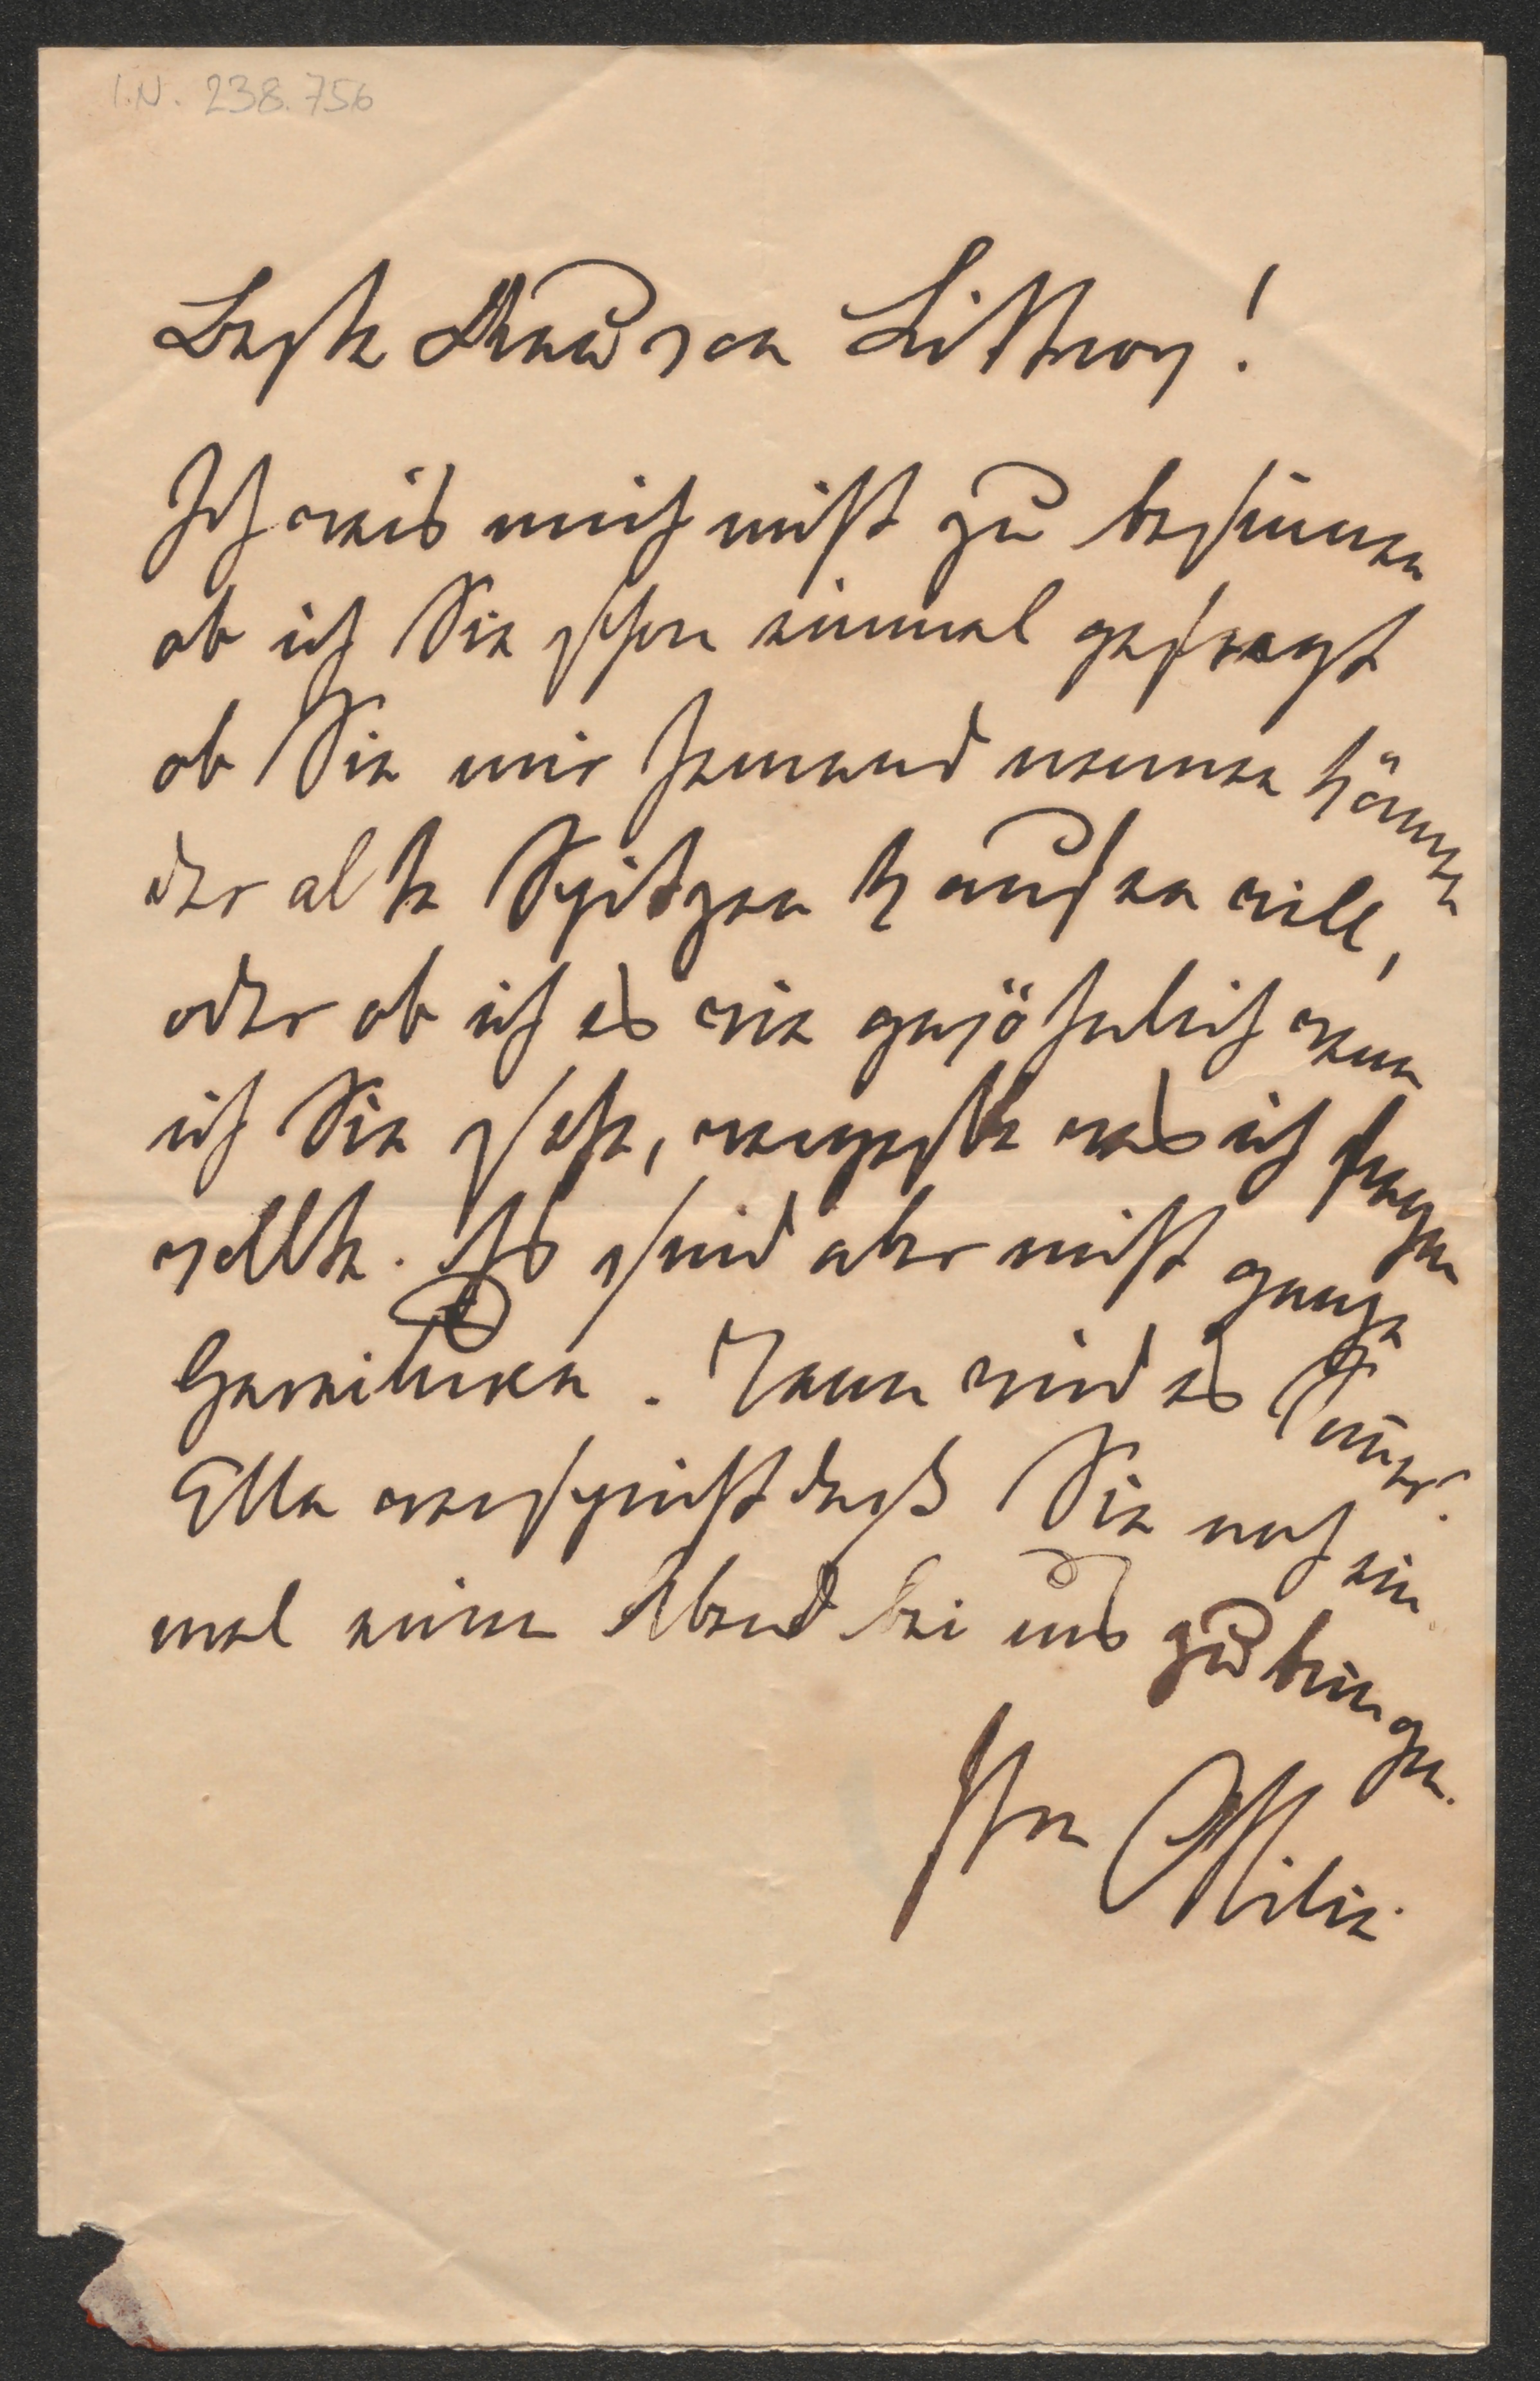 I.N. 238.756
Beste Frau von Littrow!
Ich weis mich nicht zu besinnen
ob ich Sie schon einmal gefragt
ob Sie mir Jemand nennen können
der alte Spitzen kaufen will,
oder ob ich es wie gewöhnlich wenn
ich Sie sehe, vergessen was ich fragen
wollte. Es sind aber nicht ganze
Garnituren. Wann wird es Sommer?
Ella verspricht daß Sie noch ein
mal einen Abend bei uns zubringen.
Ihre Ottilie